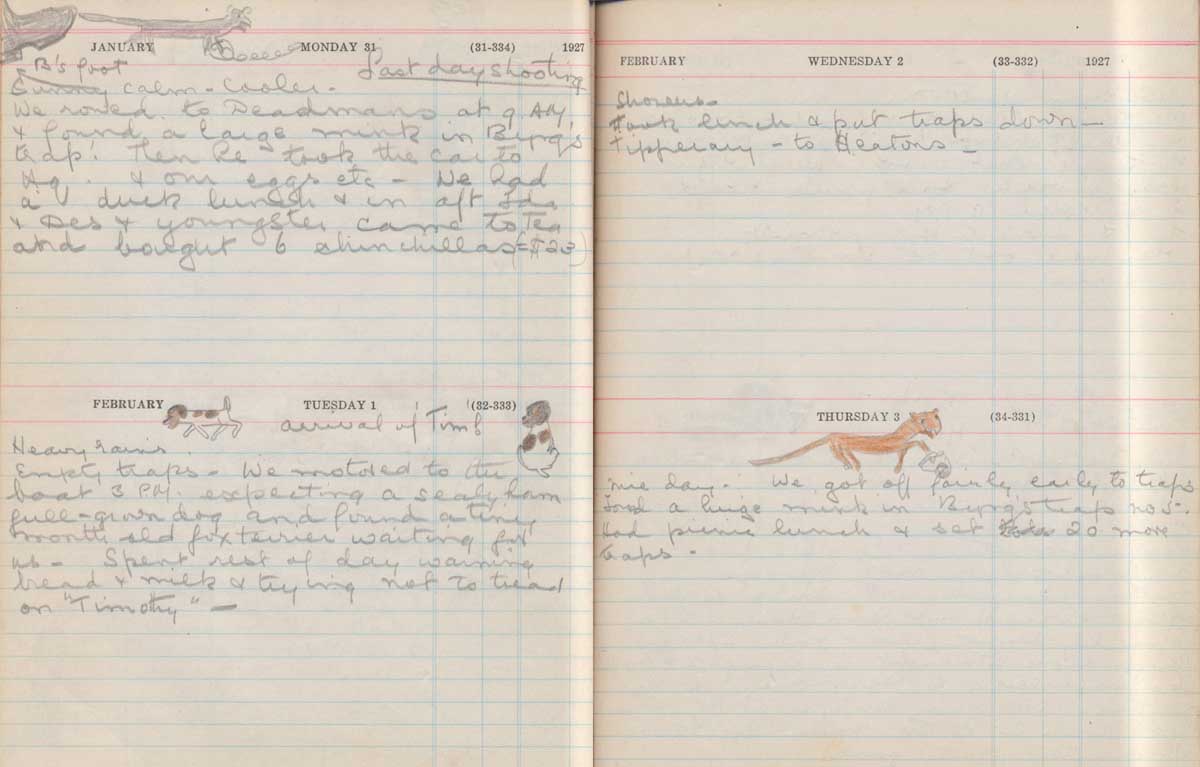 JANUARY MONDAY 31 (31-334) 1927
B's foot Last day shooting
Sunny calm - Cooler -
We rowed to Deadmans at 9 AM,
& found a large mink in Burg's
trap! Then he took the car to
Ag. & om eggs etc - We had
a duck lunch & in aft Ida
& Des & youngster came to Tea
and bought 6 chinchillas (=$23)
FEBRUARY TUESDAY 1 (32-333)
arrival of Tim!
Heavy rains.
Empty traps - We motored to the
boat 3 PM. expecting a sealyham
full-grown dog and found a tiny
month old fox terrier waiting for
us - Spent rest of day warming
bread & milk & trying not to tread
on "Timothy" -
FEBRUARY WEDNESDAY 2 (33-332) 1927
Showers -
Took lunch & put traps down -
Tipperary - to Heatons -
THURSDAY 3 (34-331)
nice day. We got off fairly early to traps
found a huge mink in Burg's trap no 5.
Had picnic lunch & set 20 more
traps -